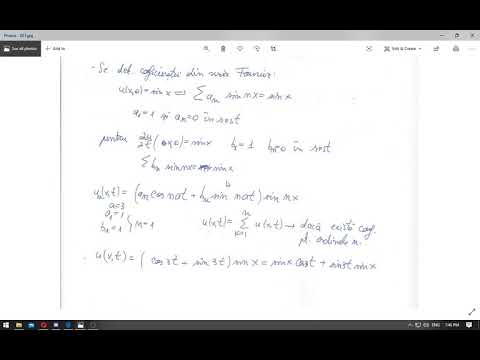 Photos - 001.jpg
See all photos
Add to
Edit & Create
Share
- Se det. coeficienții din seria Fourier:
u(x,0)=sin x ⇔ Σ an sin nx = sin x
a1=1 și an=0 în rest
pentru ∂u/∂t (x,0)=sin x b1=1 bn=0 în rest
Σ bn sin nx = sin x
un(x,t) = (an cos nat + bn sin nat) sin nx
a=3
a1=1
b1=1 } n=1 u(x,t) = Σ u(x,t) → dacă există
pt. ordinele n.
u(x,t) = ( cos 3t + sin 3t) sin x = sin x cos t + sin 3t sin x
ENG
7:46 PM